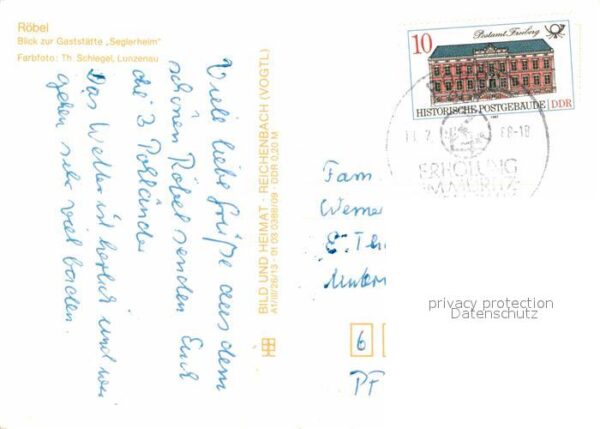 Röbel
Blick zur Gaststätte „Seglerheim"
Farbfoto: Th. Schlegel, Lunzenau
Viele liebe Grüße aus dem
schönen Röbel senden Euch
die 3
Das Wetter ist herrlich und wir
gehen sehr viel baden.
BILD UND HEIMAT · REICHENBACH (VOGTL)
A1/III/26/13 · 01 03 0386/09 · DDR 0,20 M
10
Postamt Freiberg
HISTORISCHE POSTGEBÄUDE DDR
1987
88-18
ERHOLUNG
Fam
Werne
E. Th
6
PF
privacy protection
Datenschutz